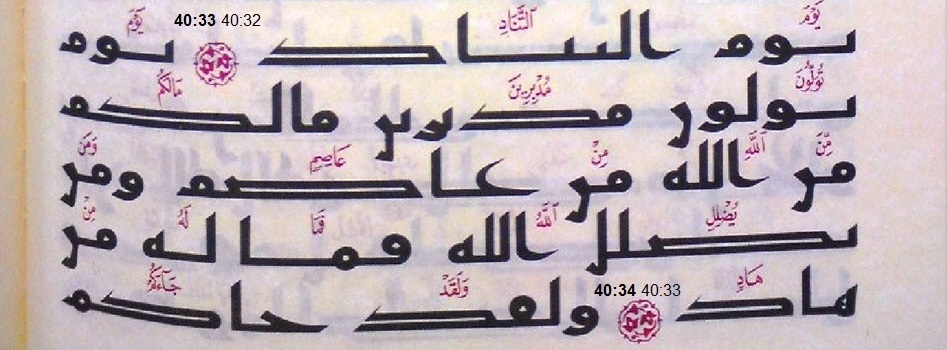 يَوْمَ ٱلتَّنَادِ 40:33 40:32 يَوْمَ
يوم التناد يوم
تُوَلُّونَ مُدْبِرِينَ مَالَكُم
تولون مدبرين مالكم
مِّنَ ٱللَّهِ مِنْ عَاصِمٍ وَمَن
من الله من عاصم ومن
يُضْلِلِ ٱللَّهُ فَمَا لَهُ مِنْ
يضلل الله فما له من
هَادٍ 40:34 40:33 وَلَقَدْ جَآءَكُمْ
هاد ولقد جاكم